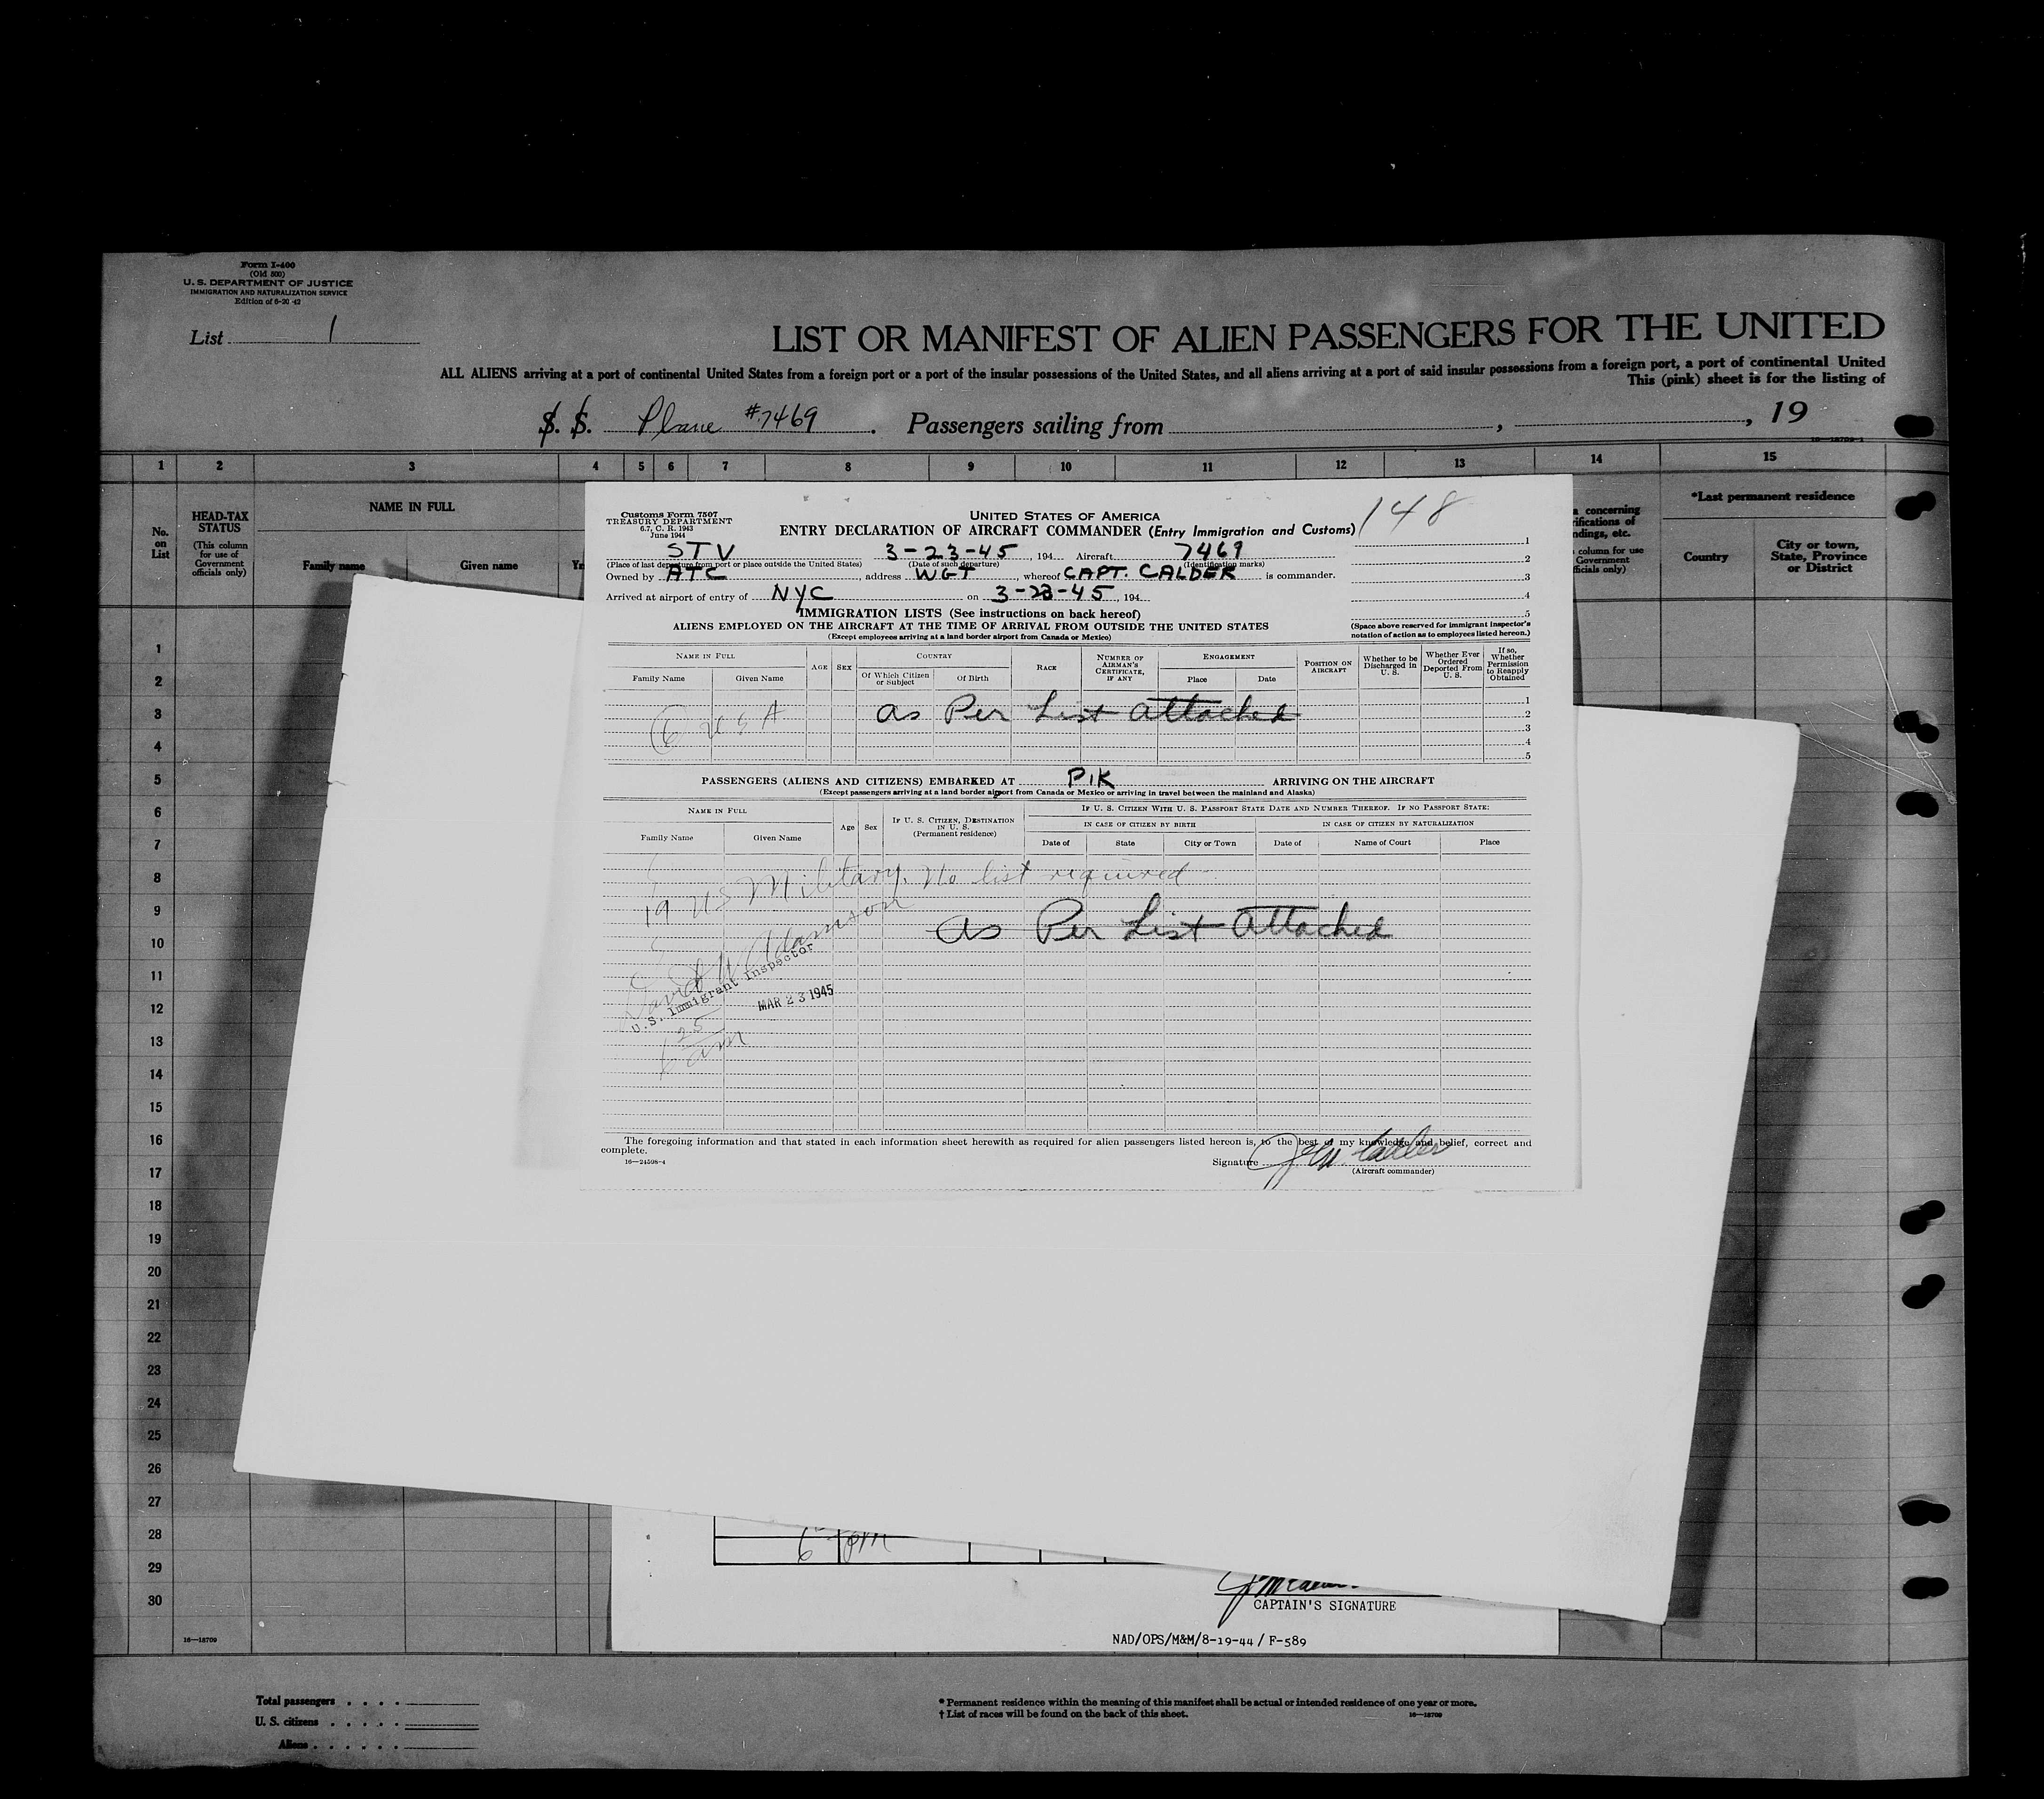 Form I-400
(Old 500)
U. S. DEPARTMENT OF JUSTICE
IMMIGRATION AND NATURALIZATION SERVICE
Edition of 6-20-42
List 1
LIST OR MANIFEST OF ALIEN PASSENGERS FOR THE UNITED
ALL ALIENS arriving at a port of continental United States from a foreign port or a port of the insular possessions of the United States, and all aliens arriving at a port of said insular possessions from a foreign port, a port of continental United
This (pink) sheet is for the listing of
S. S. Plane #7469. Passengers sailing from , , 19
16—18709-1
1 2 3 4 5 6 7 8 9 10 11 12 13 14 15
No. on List
HEAD-TAX STATUS
(This column for use of Government officials only)
NAME IN FULL
Family name Given name Yr
concerning
ifications of
ndings, etc.
column for use
Government
ficials only)
*Last permanent residence
Country
City or town, State, Province or District
Customs Form 7507
TREASURY DEPARTMENT
6.7, C. R. 1943
June 1944
UNITED STATES OF AMERICA
ENTRY DECLARATION OF AIRCRAFT COMMANDER (Entry Immigration and Customs)
148
STV 3-23-45, 194 Aircraft 7469
(Place of last departure from port or place outside the United States) (Date of such departure) (Identification marks)
Owned by ATC, address WGT, whereof CAPT. CALDER is commander.
Arrived at airport of entry of NYC on 3-23-45, 194
1
2
3
4
5
IMMIGRATION LISTS (See instructions on back hereof)
ALIENS EMPLOYED ON THE AIRCRAFT AT THE TIME OF ARRIVAL FROM OUTSIDE THE UNITED STATES
(Except employees arriving at a land border airport from Canada or Mexico)
(Space above reserved for immigrant inspector's notation of action as to employees listed hereon.)
NAME IN FULL
Family Name Given Name
AGE SEX
COUNTRY
Of Which Citizen or Subject Of Birth
RACE
NUMBER OF AIRMAN'S CERTIFICATE, IF ANY
ENGAGEMENT
Place Date
POSITION ON AIRCRAFT
Whether to be Discharged in U. S.
Whether Ever Ordered Deported From U. S.
If so, Whether Permission to Reapply Obtained
1
2
3
4
5
(6 USA
as Per List attached
PASSENGERS (ALIENS AND CITIZENS) EMBARKED AT PIK ARRIVING ON THE AIRCRAFT
(Except passengers arriving at a land border airport from Canada or Mexico or arriving in travel between the mainland and Alaska)
NAME IN FULL
Family Name Given Name
Age Sex
IF U. S. CITIZEN, DESTINATION IN U. S.
(Permanent residence)
IF U. S. CITIZEN WITH U. S. PASSPORT STATE DATE AND NUMBER THEREOF. IF NO PASSPORT STATE:
IN CASE OF CITIZEN BY BIRTH IN CASE OF CITIZEN BY NATURALIZATION
Date of State City or Town Date of Name of Court Place
19 US Military. No list required
as Per List attached
David W. Adamson
U.S. Immigrant Inspector
MAR 23 1945
6 25 am
The foregoing information and that stated in each information sheet herewith as required for alien passengers listed hereon is, to the best of my knowledge and belief, correct and
complete.
16—24598-4
Signature J M Calder
(Aircraft commander)
1
2
3
4
5
6
7
8
9
10
11
12
13
14
15
16
17
18
19
20
21
22
23
24
25
26
27
28
29
30
6 pm
CAPTAIN'S SIGNATURE
NAD/OPS/M&M/8-19-44 / F-589
16—18709
Total passengers . . . .
U. S. citizens . . . . .
Aliens . . . . . .
* Permanent residence within the meaning of this manifest shall be actual or intended residence of one year or more.
† List of races will be found on the back of this sheet.
16—18709